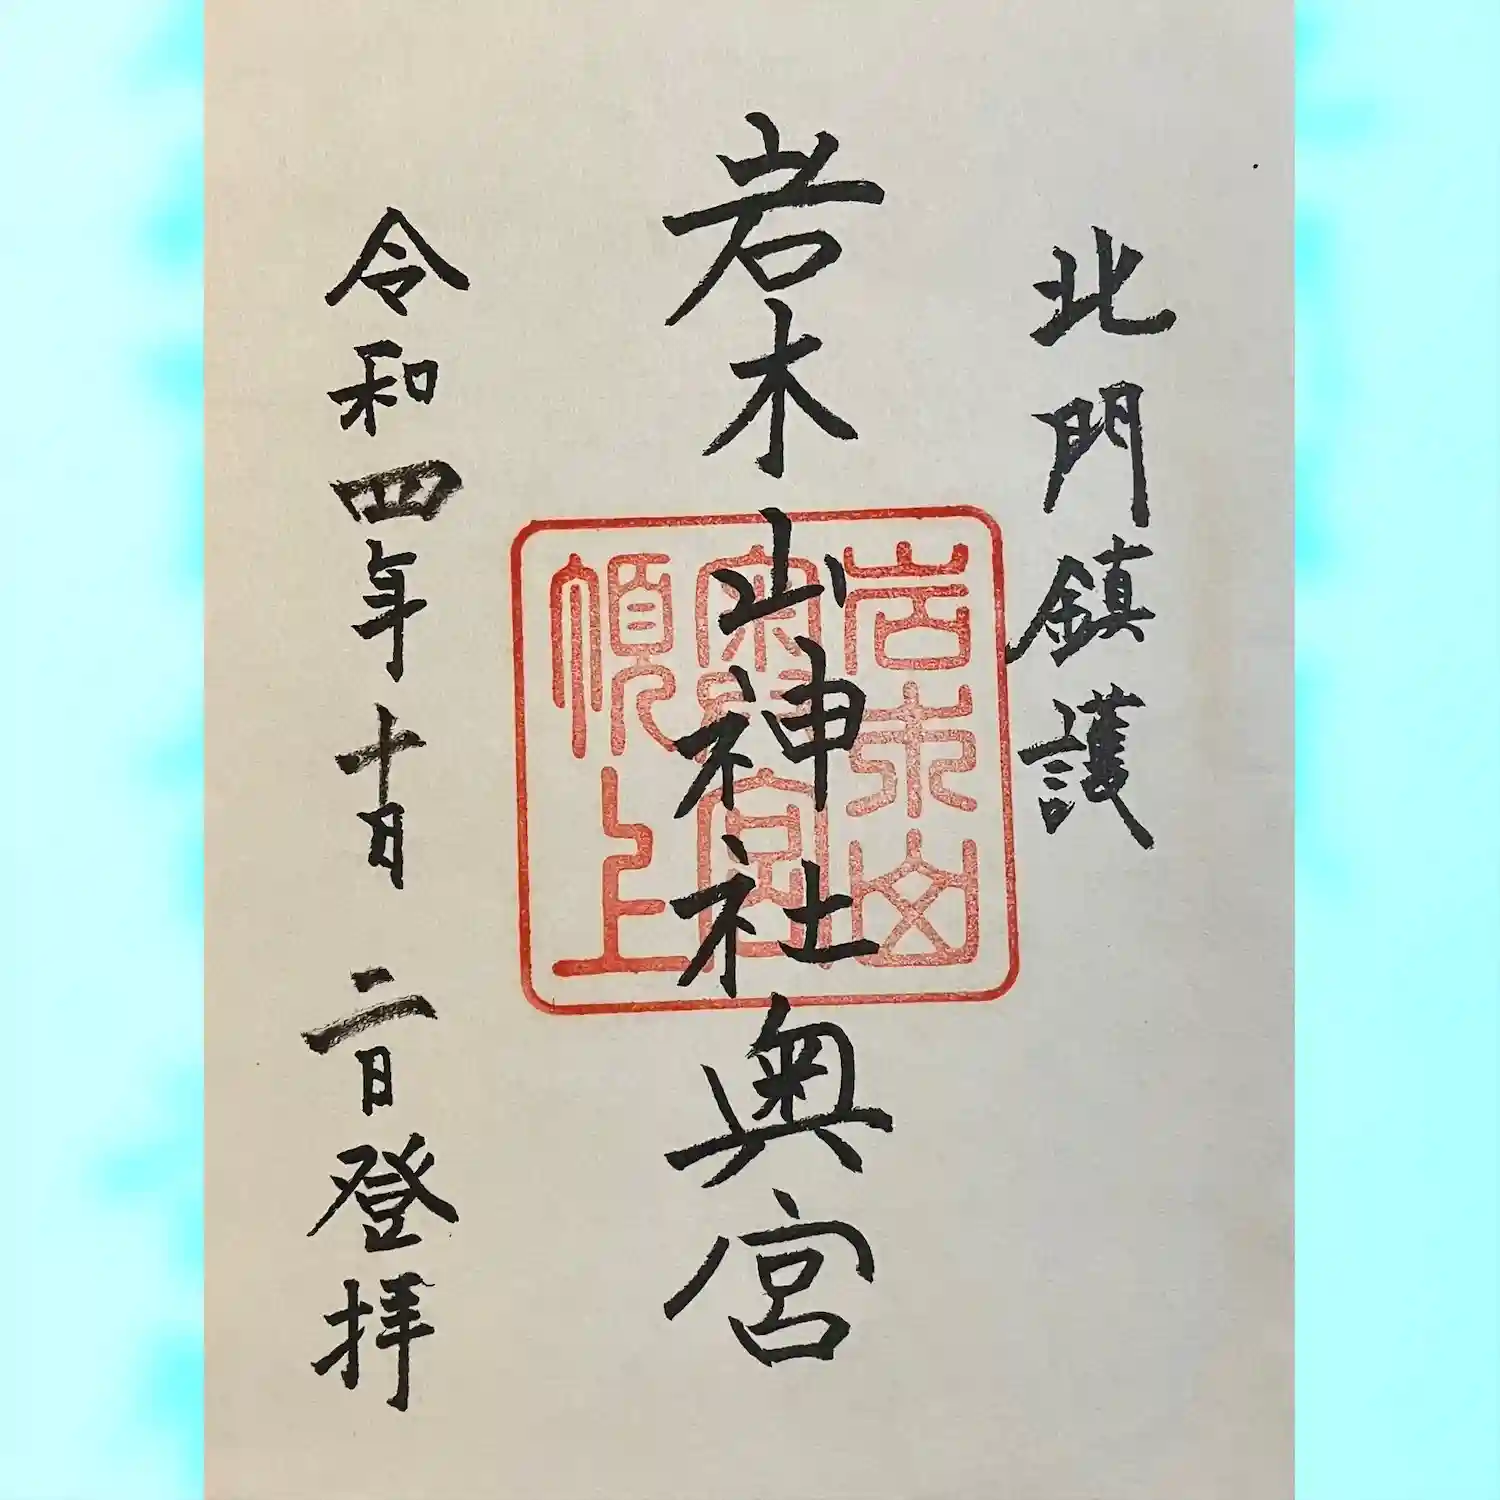 北門鎮護
岩木山神社奥宮
岩木山
奥宮
頂上
令和四年十月 二日登拝